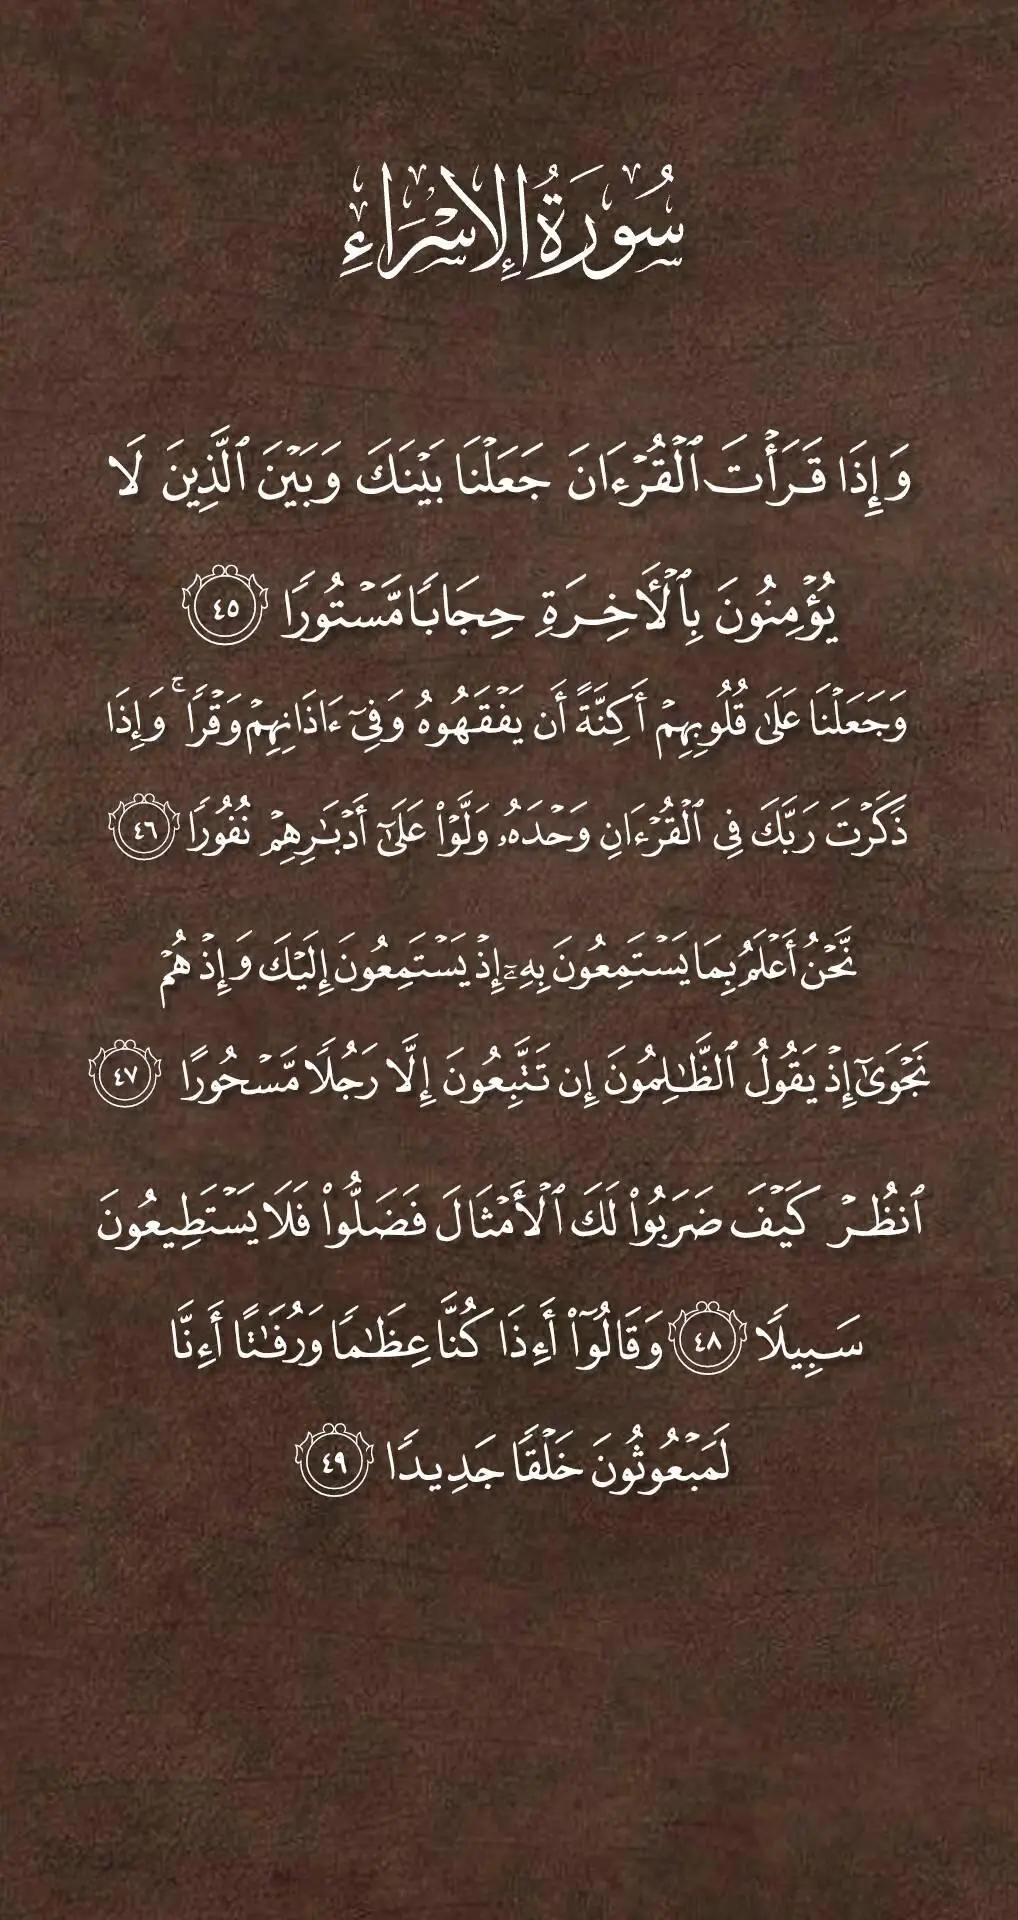 سُورَةُ الإِسْرَاءِ
وَإِذَا قَرَأْتَ ٱلْقُرْءَانَ جَعَلْنَا بَيْنَكَ وَبَيْنَ ٱلَّذِينَ لَا
يُؤْمِنُونَ بِٱلْأَخِرَةِ حِجَابًا مَّسْتُورًا ٤٥
وَجَعَلْنَا عَلَىٰ قُلُوبِهِمْ أَكِنَّةً أَن يَفْقَهُوهُ وَفِىٓ ءَاذَانِهِمْ وَقْرًا ۚ وَإِذَا
ذَكَرْتَ رَبَّكَ فِى ٱلْقُرْءَانِ وَحْدَهُۥ وَلَّوْا۟ عَلَىٰٓ أَدْبَـٰرِهِمْ نُفُورًا ٤٦
نَّحْنُ أَعْلَمُ بِمَا يَسْتَمِعُونَ بِهِۦٓ إِذْ يَسْتَمِعُونَ إِلَيْكَ وَإِذْ هُمْ
نَجْوَىٰٓ إِذْ يَقُولُ ٱلظَّـٰلِمُونَ إِن تَتَّبِعُونَ إِلَّا رَجُلًا مَّسْحُورًا ٤٧
ٱنظُرْ كَيْفَ ضَرَبُوا۟ لَكَ ٱلْأَمْثَالَ فَضَلُّوا۟ فَلَا يَسْتَطِيعُونَ
سَبِيلًا ٤٨ وَقَالُوٓا۟ أَءِذَا كُنَّا عِظَـٰمًا وَرُفَـٰتًا أَءِنَّا
لَمَبْعُوثُونَ خَلْقًا جَدِيدًا ٤٩